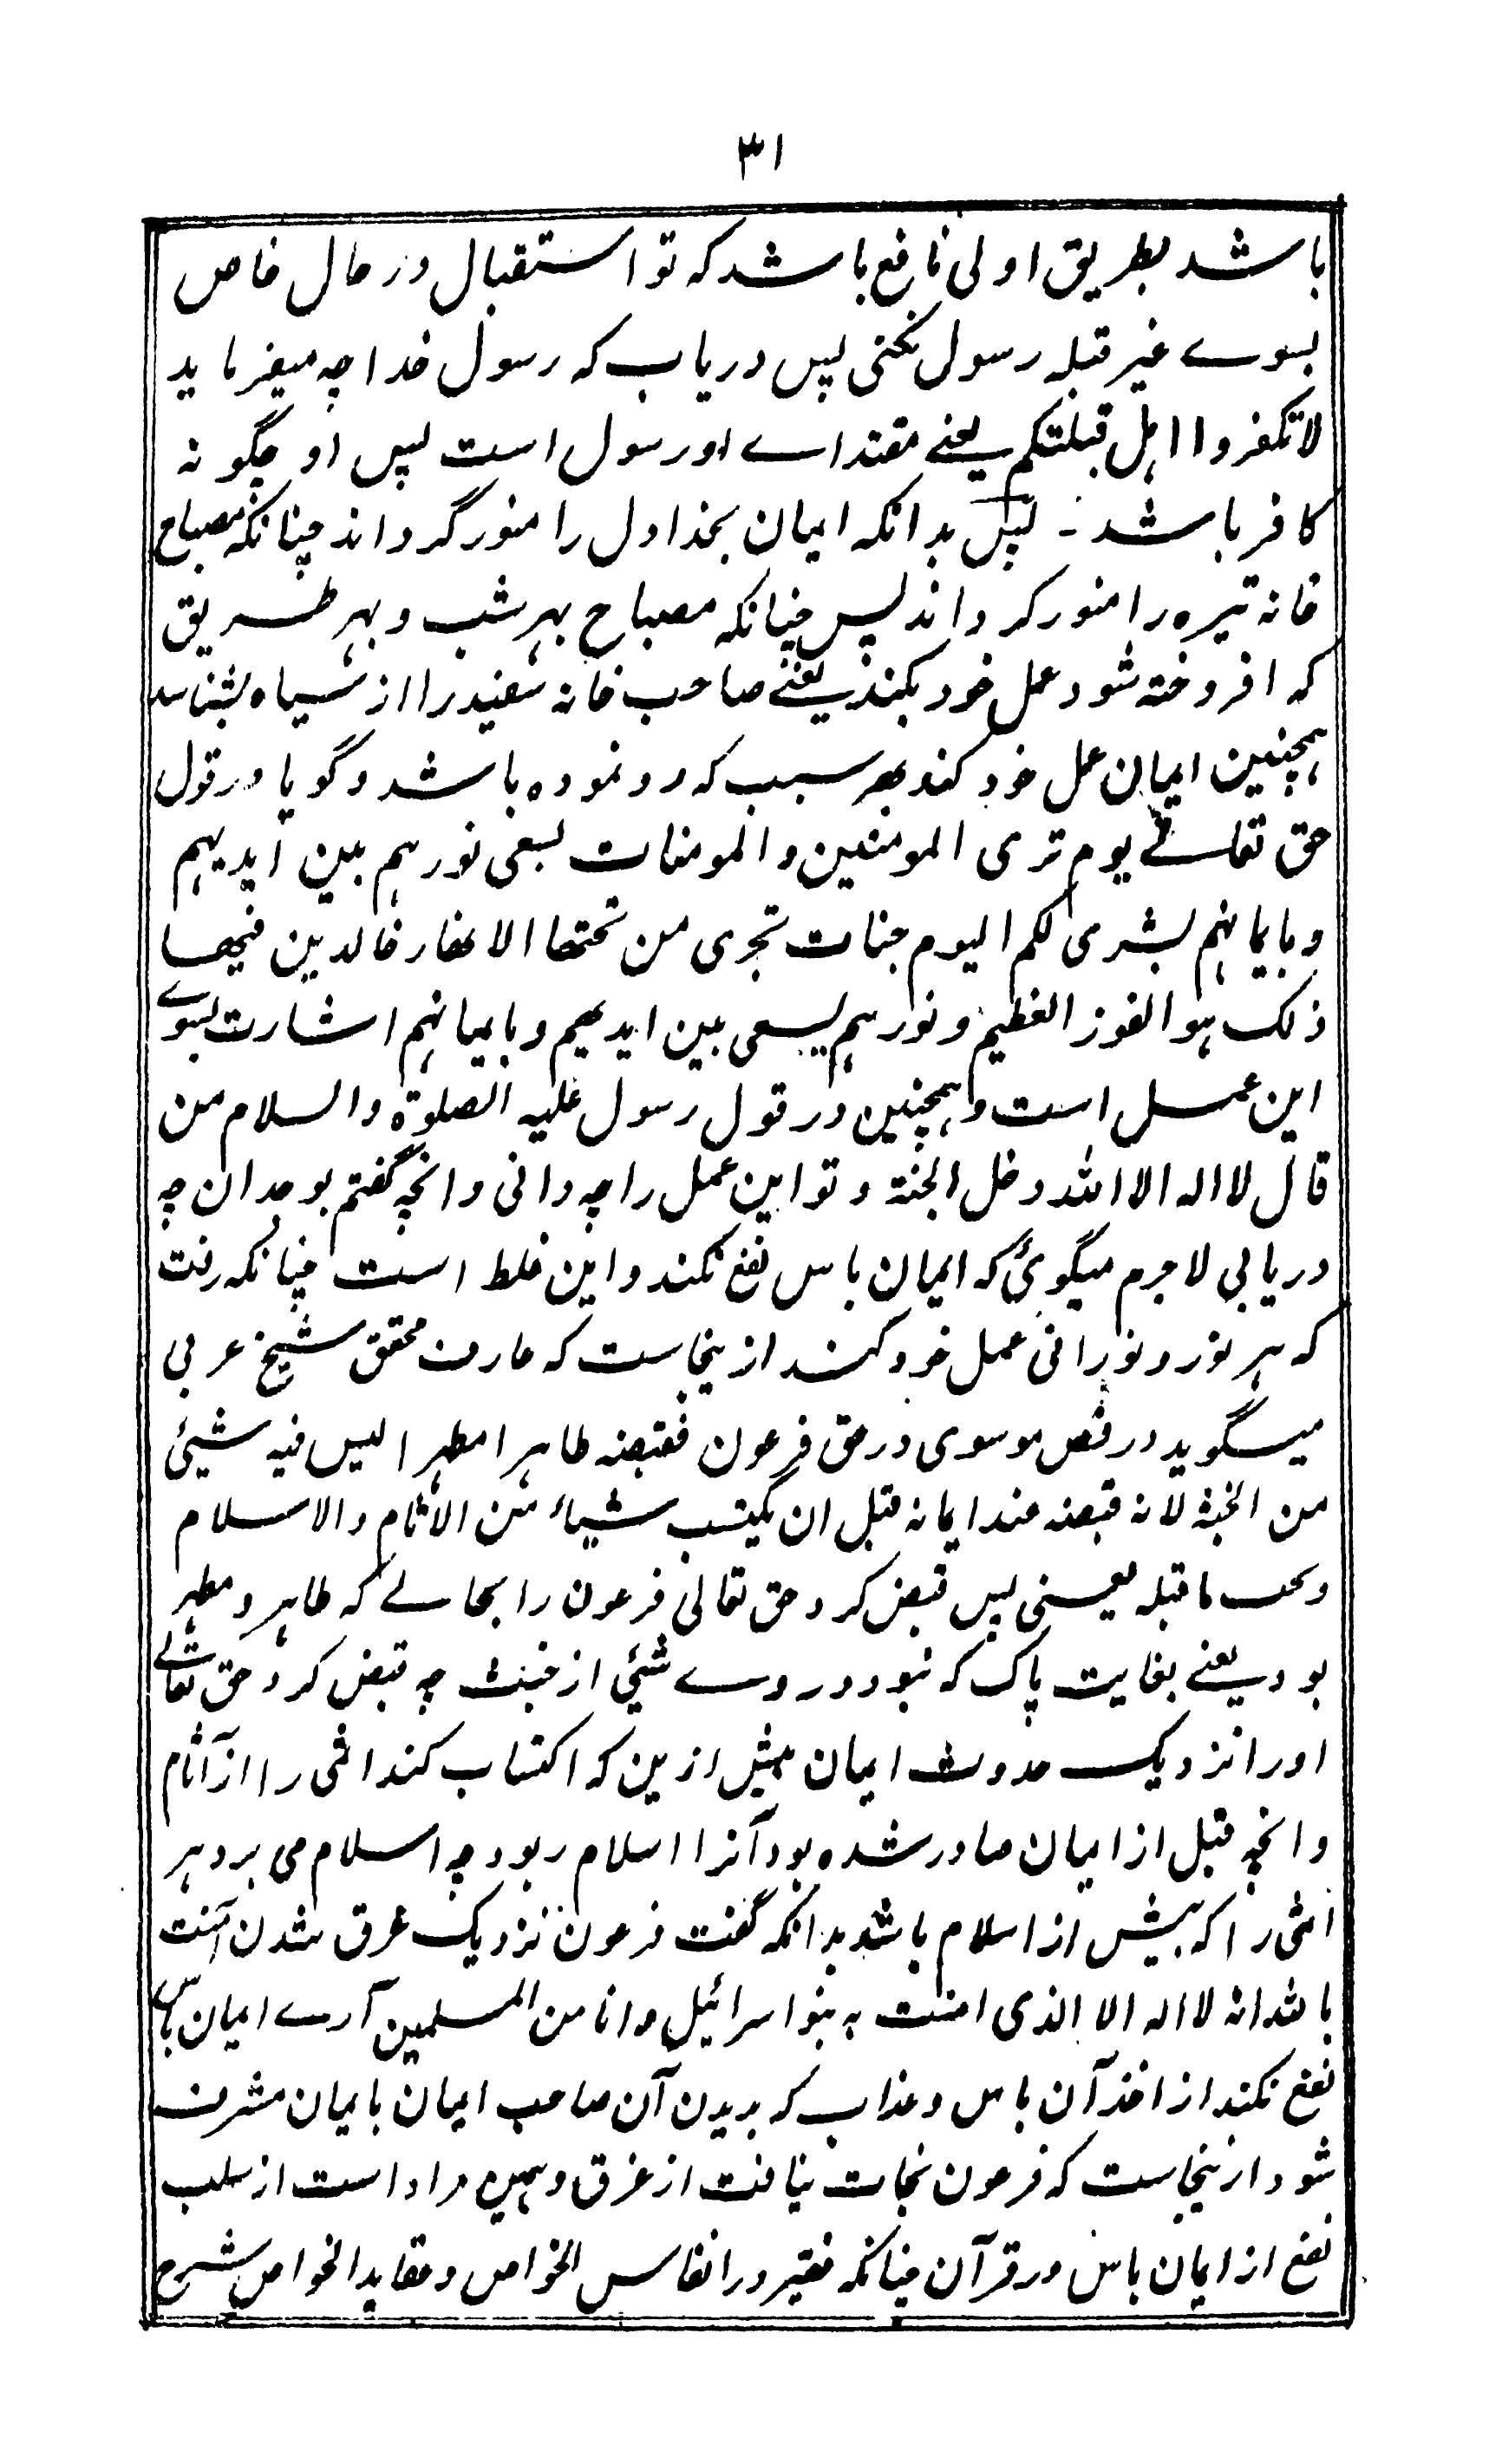 ٣١
باشد بطریق اولی نافع باشد که تو استقبال در حال خاص
بسوے غیر قبله رسول نکنی پس دریاب که رسول خدا چه میفرماید
لا تکفروا اہل قبلتکم یعنے مقتداے او رسول است پس او چگونه
کافر باشد ۔ پس بدانکه ایمان بخدا دل را منور گرداند چنانکه مصباح
خانه تیره را منور کرداند پس چنانکه مصباح بہر شب و بہر طریق
که افروخته شود عمل خود بکند یعنے صاحب خانه سفید را از سیاه بشناسد
ہمچنین ایمان عمل خود کند بھر سبب که رو نموده باشد و گویا در قول
حق تعالے یوم تری المومنین والمومنات یسعی نورہم بین ایدیہم
وبایمانہم بشری لکم الیوم جنات تجری من تحتھا الانھار خالدین فیھا
ذلک ہو الفوز العظیم و نورہم یسعی بین ایدیھیم وبایمانہم اشارت بسوے
این عمل است و ہمچنین در قول رسول علیه الصلوة والسلام من
قال لا اله الا الله دخل الجنة و تو این عمل را چه دانی و انچه گفتم بوجدان چه
دریابی لاجرم میگوئی که ایمان باس نفع نکند و این غلط است چنانکه رفت
که ہر نور و نورانی عمل خود کند ازینجاست که عارف محقق شیخ عربی
میگوید در فص موسوی در حق فرعون فقبضه طاہرا مطہرا لیس فیه شیئ
من الخبث لانه قبضه عند ایمانه قبل ان یکتسب شیاء من الاثام والاسلام
یحب ما قبله یعنی پس قبض کرد حق تعالی فرعون را بحالے که طاہر و مطہر
بود یعنے بغایت پاک که نبود در وے شیئ از خبث چه قبض کرد حق تعالے
او را نزدیک حدوث ایمان پیش ازین که اکتساب کند اثمی را از آثام
و انچه قبل از ایمان صادر شده بود آنرا اسلام ربود چه اسلام می برد ہر
اثمی را که پیش از اسلام باشد بدانکه گفت فرعون نزدیک غرق شدن آمنت
بالله انه لا اله الا الذی امنت به بنو اسرائیل و انا من المسلمین آرے ایمان باس
نفع نکند از اخذ آن باس و عذاب که بدیدن آن صاحب ایمان بایمان مشرف
شود ازینجاست که فرعون نجات نیافت از غرق و ہمین مراد است از سلب
نفع از ایمان باس در قرآن چنانکه فقیر در انفاس الخواص و عقاید الخواص شرح